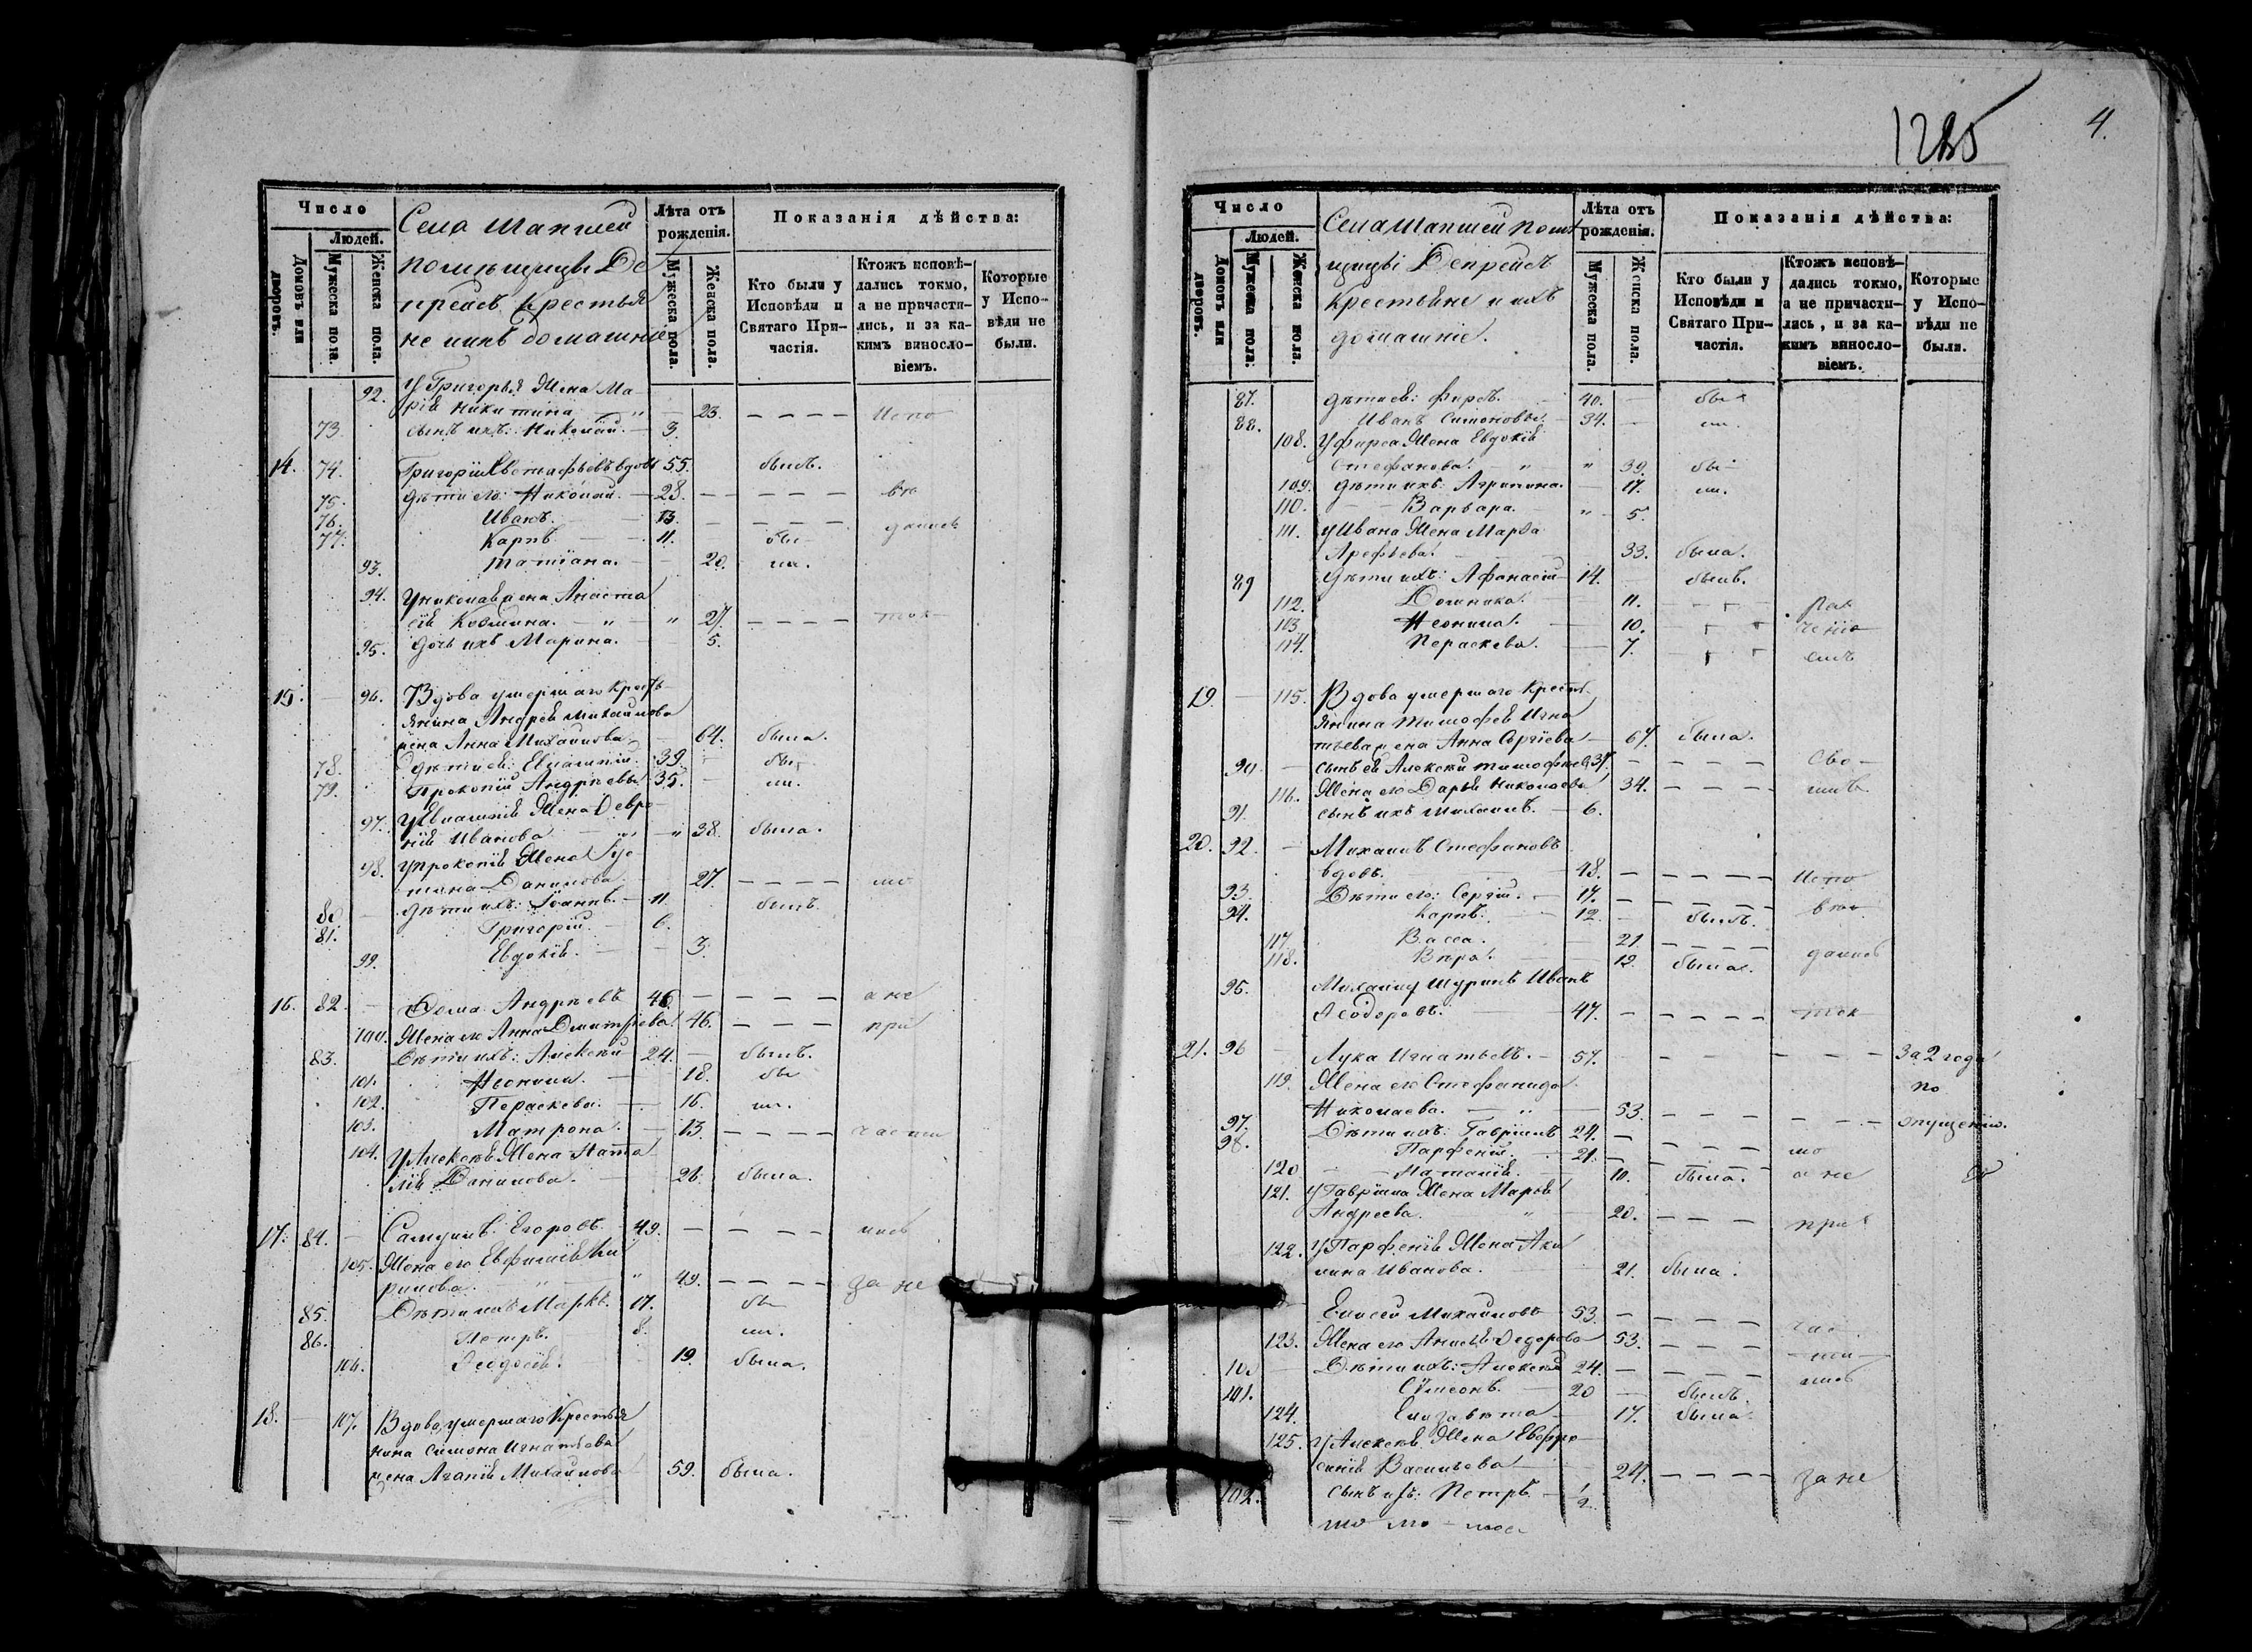 Число
Людей.
Домовъ или дворовъ.
Мужеска пола.
Женска пола.
Села Шапшей
помѣщицы Де
прейсъ крестья
не и ихъ домашніе
Лѣта отъ рожденія.
Мужеска пола.
Женска пола.
Показанія дѣйства:
Кто были у Исповѣди и Святаго Причастія.
Ктожъ исповѣдались токмо, а не причастились, и за какимъ винословіемъ.
Которые у Исповѣди не были.
92. У Григорья жена Ма
рія Никитина " 23. испо
73. сынъ ихъ: Николай. 3.
14. 74. Григорій Евстафьевъ вдовъ 55. былъ.
75. дѣти его: Николай. 28. вѣ
76. Иванъ. 13. дались
77. Карпъ 11. бы
93. Татіана. 20. ли.
94. У Николая жена Анаста
сія Козмина. " " 27. ток
95. дочь ихъ Марина. 5.
15. 96. Вдова умершаго крестья
янина Андрея Михайлова
жена Анна Михайлова 64. была.
78. дѣти ея: Евлампій 39. бы
79. Прокопій Андреевы 35. ли.
97. У Евлампія жена Февро
нія Иванова " 38. была.
98. У Прокопія жена Іус
тина Данилова 27. мо
80. дѣти ихъ: Іоаннъ. 11. былъ
81. Григорій. 6.
99. Евдокія. 3.
16. 82. Ѳома Андреевъ 46. а не
100. Жена его Анна Дмитріева 46. при
83. Дѣти ихъ: Алексѣй 24. былъ.
101. Неонила. 18. бы
102. Пераскева. 16. ли.
103. Матрона. 13. части
104. У Алексѣя жена Ната
лія Данилова. 26. была.
17. 84. Самуилъ Егоровъ 49. лись
105. Жена его Евфимія Ки
рилова. " " 49. за не
85. Дѣти ихъ Маркъ. 17. бы
86. Петръ. 8. ли.
106. Ѳеодосія. 19. была.
18. 107. Вдова умершаго крестья
нина Симона Игнатьева
жена Агапія Михайлова 59. была.
1285
4.
Число
Людей.
Домовъ или дворовъ.
Мужеска пола.
Женска пола.
Села Шапшей помѣ
щицы Депрейсъ
крестьяне и ихъ
домашніе.
Лѣта отъ рожденія.
Мужеска пола.
Женска пола.
Показанія дѣйства:
Кто были у Исповѣди и Святаго Причастія.
Ктожъ исповѣдались токмо, а не причастились, и за какимъ винословіемъ.
Которые у Исповѣди не были.
87. дѣти ея: Фирсъ. 40. бы
88. Иванъ Симоновы. 34. ли.
108. У Фирса жена Евдокія
Стефанова. " " 39. бы
109. дѣти ихъ: Агрипина. 17. ли.
110. Варвара. " 5.
111. У Ивана жена Марѳа
Арефьева. 33. была.
89 Дѣти ихъ: Афанасій 14. былъ.
112. Домника. 11. рач
103 Неонила. 10. чені
114. Пераскева. 7. емъ
19. 115. Вдова умершаго кресть
янина Тимофея Игна
тьева жена Анна Сергіева 67. была.
90 сынъ ея Алексѣй Тимофеевъ 37. сво
116. Жена его Дарья Николаева 34. имъ
91. сынъ ихъ Михаилъ. 6.
20. 92. Михаилъ Стефановъ
вдовъ. 48. испо
93. Дѣти его: Сергій. 17. вѣ
94. Карпъ. 12. былъ.
117. Васса. 21. дались
118. Вѣра. 12. была.
95. Михаилу шуринъ Иванъ
Ѳеодоровъ. 47. ток
21. 96 Лука Игнатьевъ. 57. За 2 года
119. Жена его Стефанида по
Николаева. " 53. опущенію.
97. Дѣти ихъ: Гавріилъ 24.
98. Парфеній. 21. мо
120 Наталія. 10. была. а не
121. У Гавріила жена Марья
Андреева. " 20. при
122. У Парфенія жена Аки
лина Иванова. 21. была.
Елисей Михайловъ 53. час
123. Жена его Анисья Ѳедорова 53. ти
100 Дѣти ихъ: Алексѣй 24. лись
101. Сѵмеонъ. 20 былъ.
124. Елизавета 17. была.
125. У Алексѣя жена Евфро
синія Васильева 24. за не
102. сынъ ихъ: Петръ. 1/2